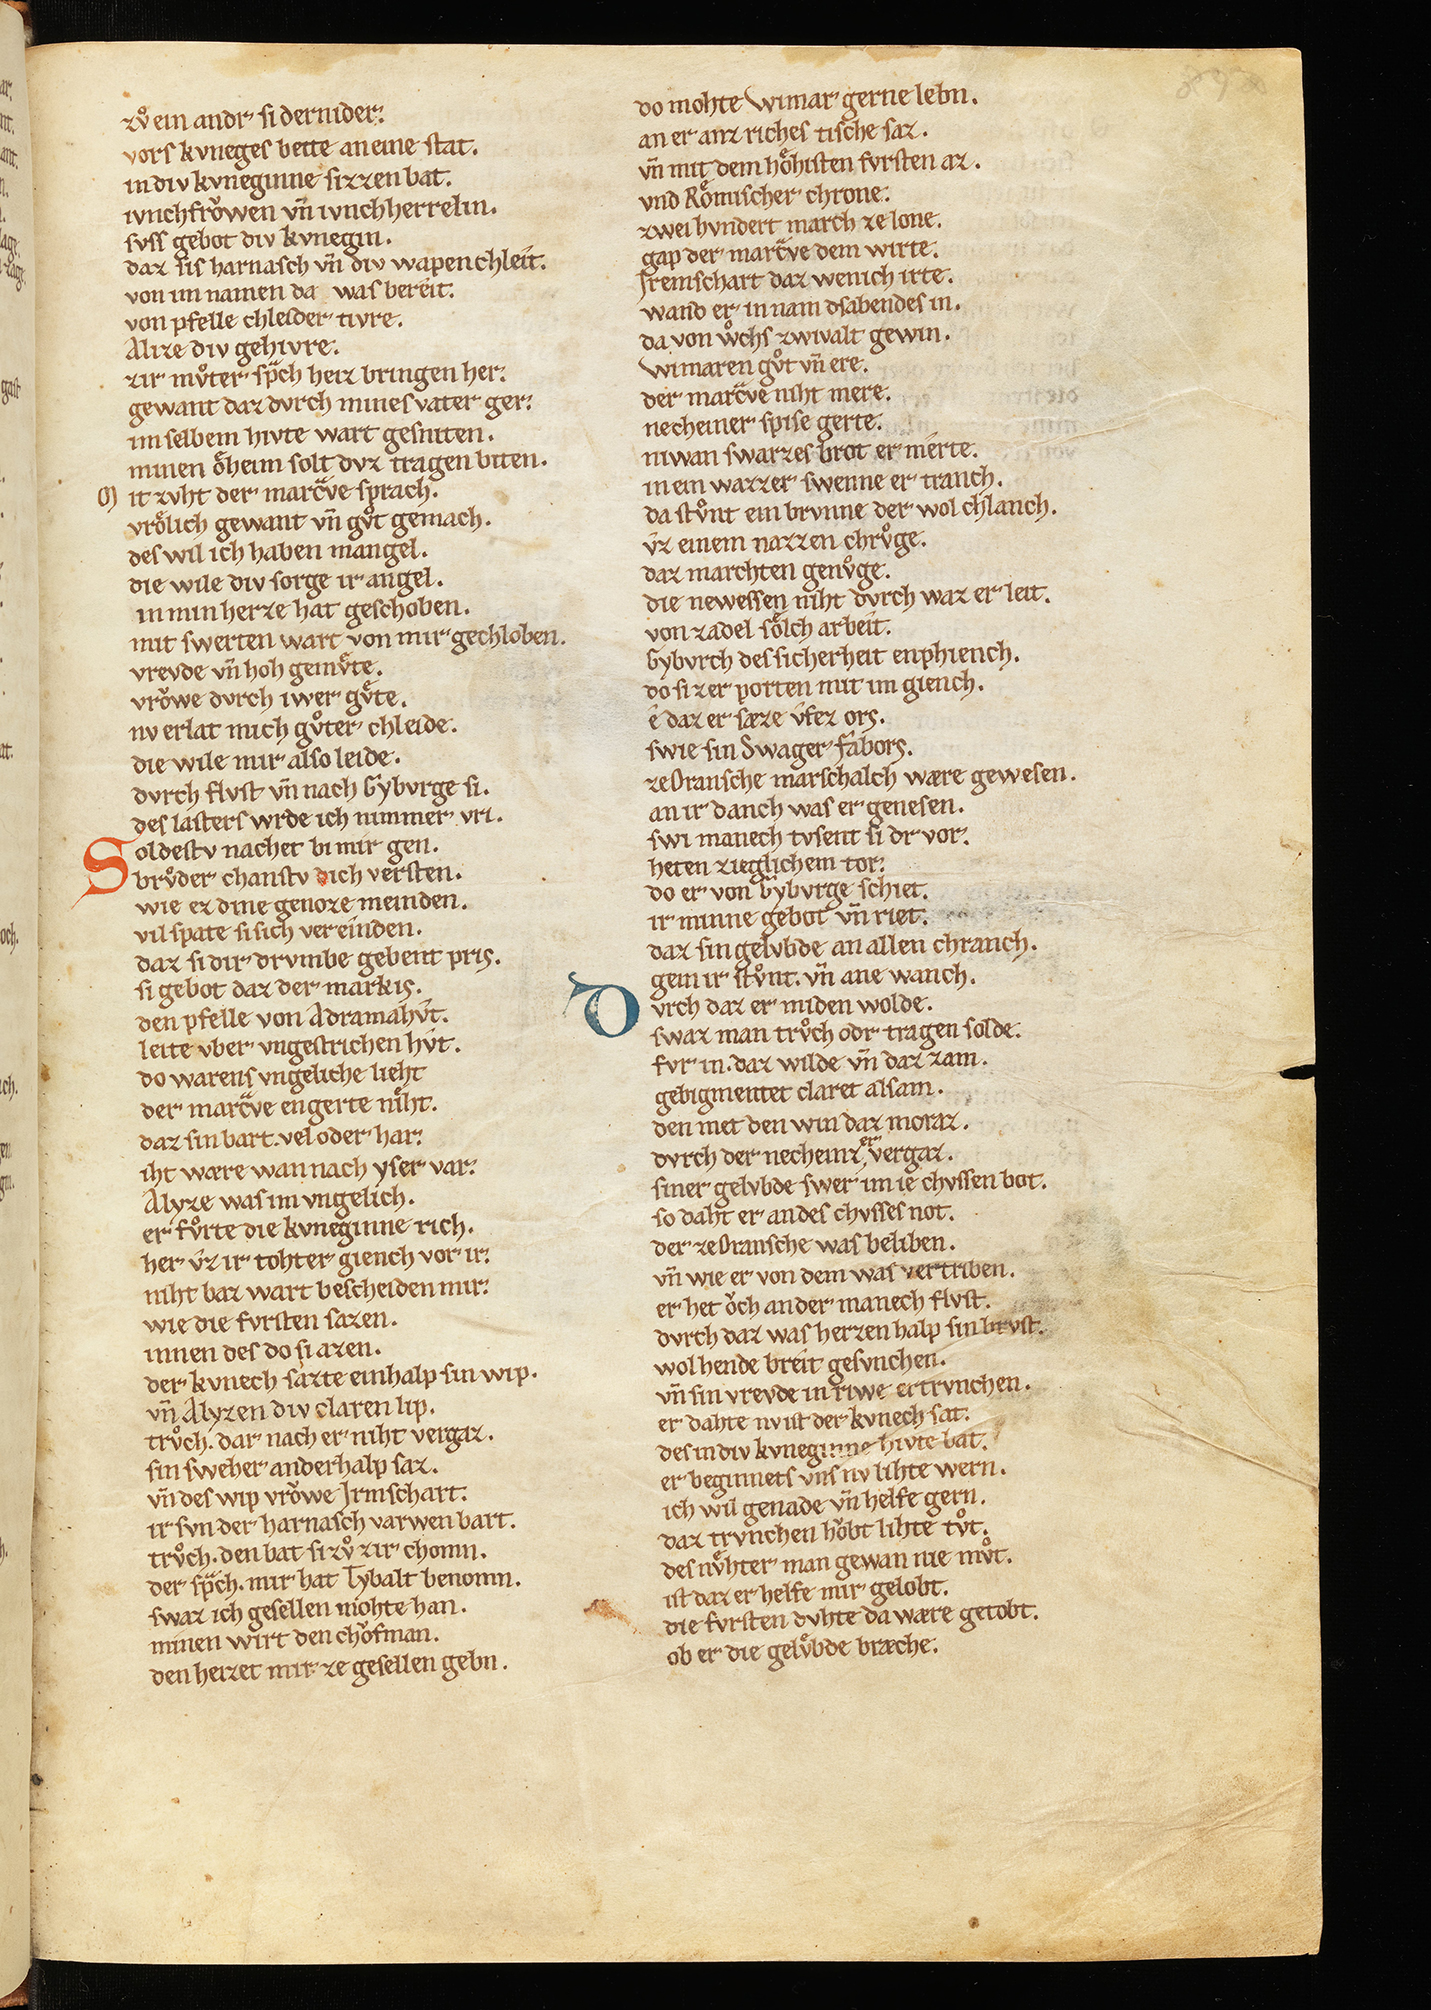 zv̊ ein andr si der nider.
vors kvneges bette an eine stat.
in div kvneginne sizzen bat.
ivnchfrǒwen vn̄ ivnchherrelin.
svss gebot div kvnegin.
daz sis harnasch vn̄ div wapenchleit.
von im namen da was bereit.
von pfelle chleider tivre.
Alize div gehivre.
zir mv̊ter sp̈ch heiz bringen her.
gewant daz dvrch mines vater ger.
im selbem hivte wart gesniten.
minen ȯheim solt dvz tragen biten.
M it zvht der marc̈ve sprach.
vrȯlich gewant vn̄ gv̊t gemach.
des wil ich haben mangel.
die wile div sorge ir angel.
in min herze hat geschoben.
mit swerten wart von mir gechloben.
vrevde vn̄ hoh gemv̊te.
vrǒwe dvrch iwer gv̊te.
nv erlat mich gv̊ter chleide.
die wile mir also leide.
dvrch flvst vn̄ nach Gybvrge si.
des lasters wrde ich nimmer vri.
Soldestv nachet bi mir gen.
brv̊der chanstv dich versten.
wie ez dine genoze meinden.
vil spate si sich vereinden.
daz si dir drvmbe gebent pris.
si gebot daz der markis.
den pfelle von Adramahvt.
leite vber vngestrichen hvt.
do warens vngeliche lieht
der marc̈ve engerte niht.
daz sin bart. vel oder har.
iht wære wan nach yser var.
Alyze was im vngelich.
er fv̊rte die kvneginne rich.
her vz ir tohter giench vor ir.
niht baz wart bescheiden mir.
wie die fvrsten sazen.
innen des do si azen.
der kvnech sazte einhalp sin wip.
vn̄ Alyzen div claren lip.
trv̊ch. dar nach er niht vergaz.
sin sweher anderhalp saz.
vn̄ des wip vrǒwe Irmschart.
ir svn der harnasch varwen bart.
trv̊ch. den bat si zv̊ zir chomn.
der sp̈ch. mir hat Tybalt benomn.
swaz ich gesellen mohte han.
minen wirt den chǒfman.
den heizet mir ze gesellen gebn.
do mohte Wimar gerne lebn.
an er anz riches tische saz.
vn̄ mit dem hȯhisten fvrsten az.
vnd Rȯmischer chrone.
zwei hvndert march ze lone.
gap der marc̈ve dem wirte.
Iremschart daz wenich irte.
wand er in nam dsabendes in.
da von wͦchs zwivalt gewin.
Wimaren gv̊t vn̄ ere.
der marc̈ve niht mere.
necheiner spise gerte.
niwan swarzes brot er merte.
in ein wazzer swenne er tranch.
da stv̊nt ein brvnne der wol chlanch.
vz einem nazzen chrv̊ge.
daz marchten genv̊ge.
die newessen niht dvrch waz er leit.
von zadel sȯlch arbeit.
Gybvrch des sicherheit enphiench.
do si zer porten mit im giench.
e daz er sæze vfez ors.
swie sin Swager Fabors.
ze Oransche marschalch wære gewesen.
an ir danch was er genesen.
swi manech tvsent si dr vor.
heten zieglichem tor.
do er von Gybvrge schiet.
ir minne gebot vn̄ riet.
daz sin gelvbde an allen chranch.
gein ir stv̊nt. vn̄ ane wanch.
Dvrch daz er miden wolde.
swaz man trv̊ch odr tragen solde.
fvr in. daz wilde vn̄ daz zam.
gebigmentet claret alsam.
den met den win daz moraz.
dvrch der necheinz er vergaz.
siner gelvbde swer im ie chvssen bot.
so daht er andes chvsses not.
der ze Oransche was beliben.
vn̄ wie er von dem was vertriben.
er het ǒch ander manech flvst.
dvrch daz was herzen halp sin brvst.
wol hende breit gesvnchen.
vn̄ sin vrevde in riwe ertrvnchen.
er dahte nv ist der kvnech sat.
des in div kvneginne hivte bat.
er beginnets vns nv lihte wern.
ich wil genade vn̄ helfe gern.
daz trvnchen hǒbt lihte tv̊t.
des nv̊hter man gewan nie mv̊t.
ist daz er helfe mir gelobt.
die fvrsten dvhte da wære getobt.
ob er die gelv̊bde bræche.